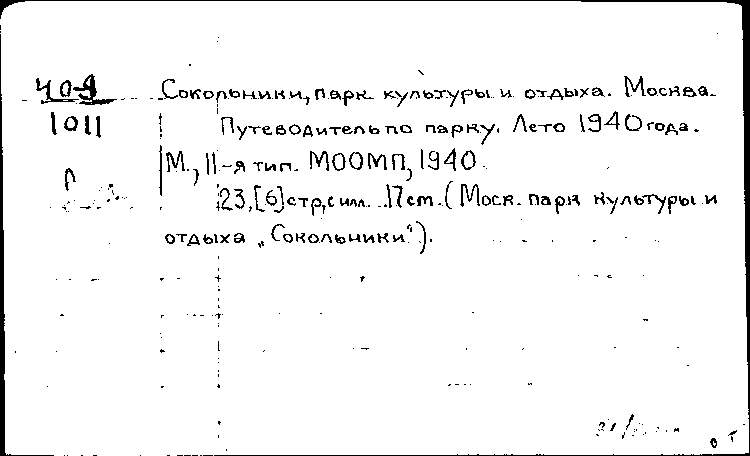 40-9 Сокольники, парк культуры и отдыха. Москва.
1011 Путеводитель по парку. Лето 1940 года.
М., 11-я тип. МООМП, 1940.
23,[6] стр, с илл. 17 cm. (Моск. парк культуры и
отдыха „Сокольники“).